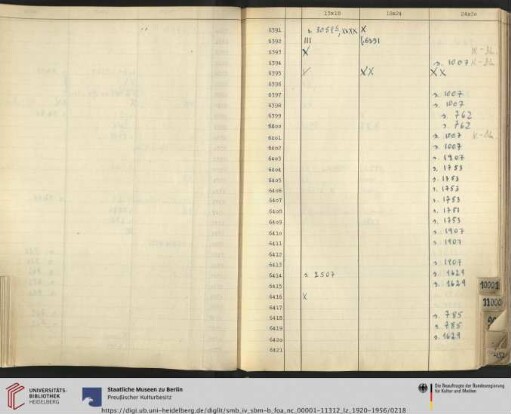 13x18 18x24 24x30
6391 X
6392 III
6393 X
6394 s. 1007
6395 ✓ XX XX
6396
6397 s. 1007
6398 s. 1007
6399 s. 762
6400 s. 762
6401 s. 1007
6402 s. 1007
6403 s. 1907
6404 s. 1753
6405 s. 1753
6406 s. 1753
6407 s. 1753
6408 s. 1753
6409 s. 1753
6410 s. 1907
6411 s. 1907
6412
6413 s. 1907
6414 s. 2507 s. 1629
6415 s. 1629
6416 X
6417
6418 s. 785
6419 s. 785
6420 s. 1629
6421
10001
11000
UNIVERSITÄTS-
BIBLIOTHEK
HEIDELBERG
Staatliche Museen zu Berlin
Preußischer Kulturbesitz
Die Beauftragte der Bundesregierung
für Kultur und Medien
https://digi.ub.uni-heidelberg.de/diglit/smb_iv_sbm-b_foa_nc_00001-11312_lz_1920-1956/0218